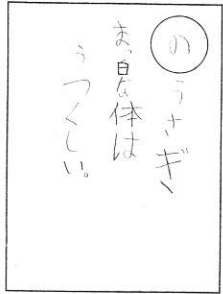 の
うさぎ、
まっ白な体は
うつくしい。